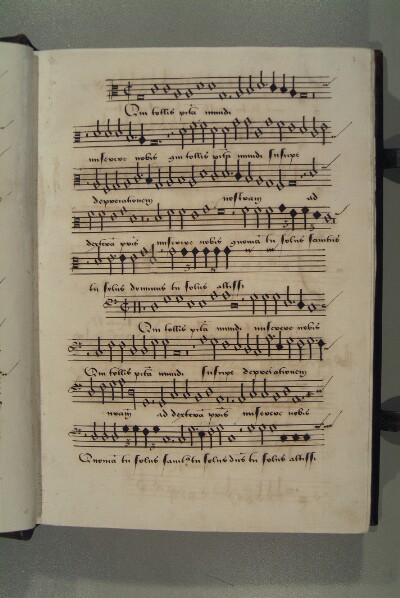 Qui tollis pctā mundi
miserere nobis qui tollis pctā mundi suscipe
deprecationem nostram ad
dexterā pris miserere nobis qnomā tu solus sanctus
tu solus dominus tu solus altiss.
Qui tollis pctā mundi miserere nobis
Qui tollis pctā mundi suscipe deprecationem
nram ad dexterā pris miserere nobis
Qnomā tu solus sanct9 tu solus dns tu solus altiss.